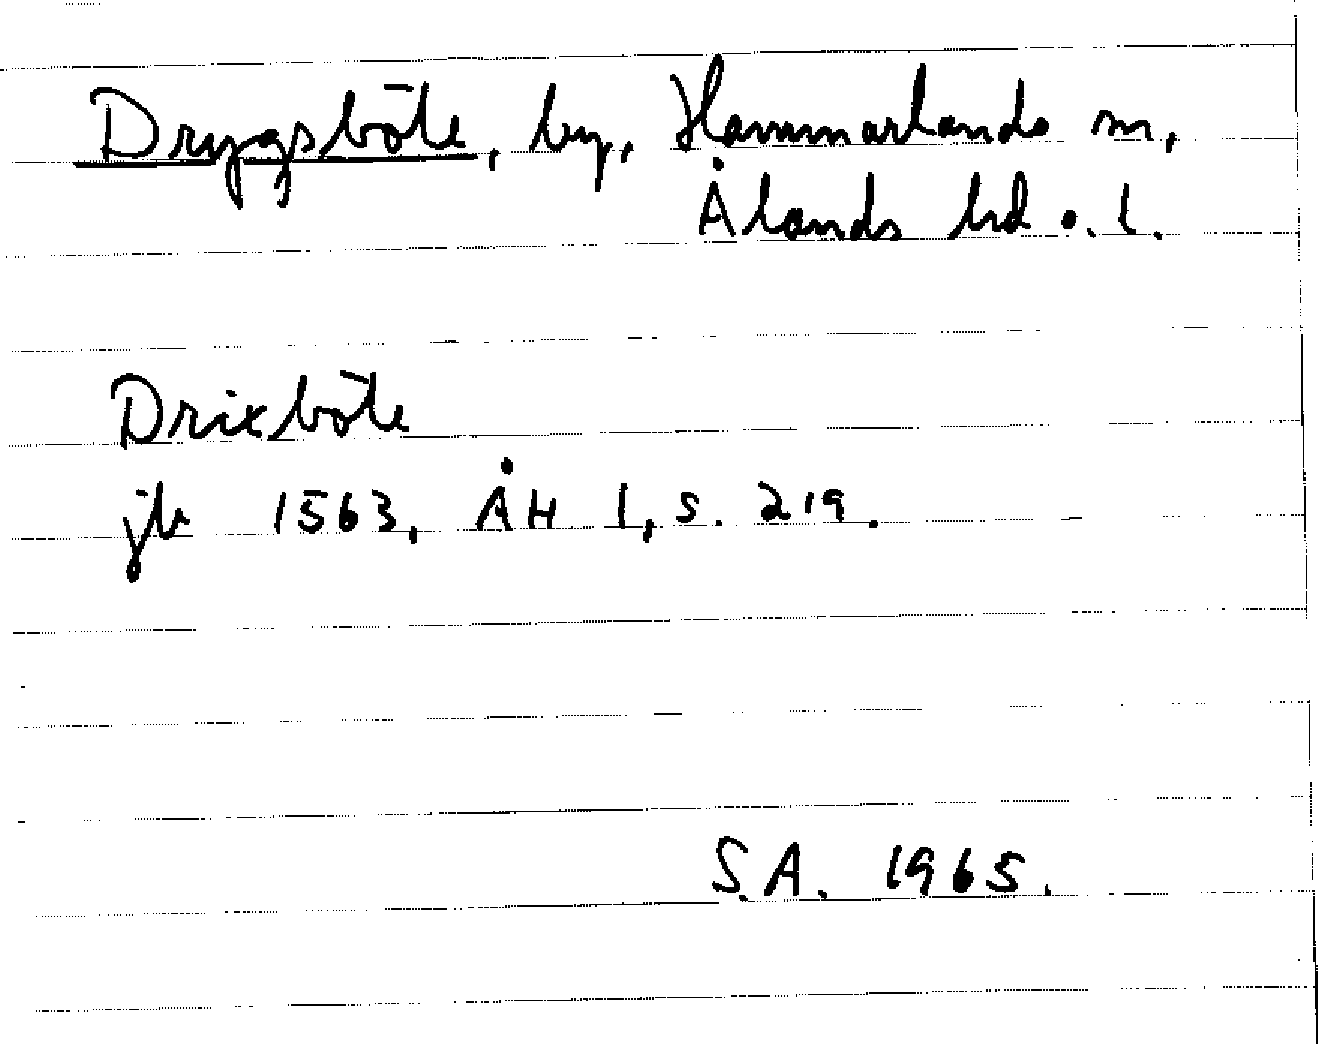 Drygsböle, by, Hammarlands sn,
Ålands hd o. l.
Drixböle
jb 1563, ÅH 1, s. 219.
S.A. 1965.